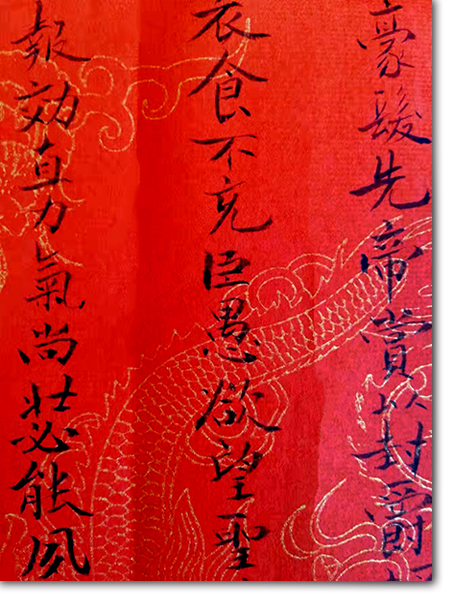 豪髮先帝賞以封爵
衣食不充臣愚欲望聖
報効直力氣尚壯必能夙